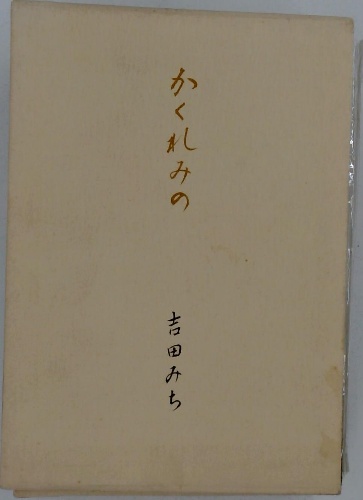 かくれみの
吉田みち